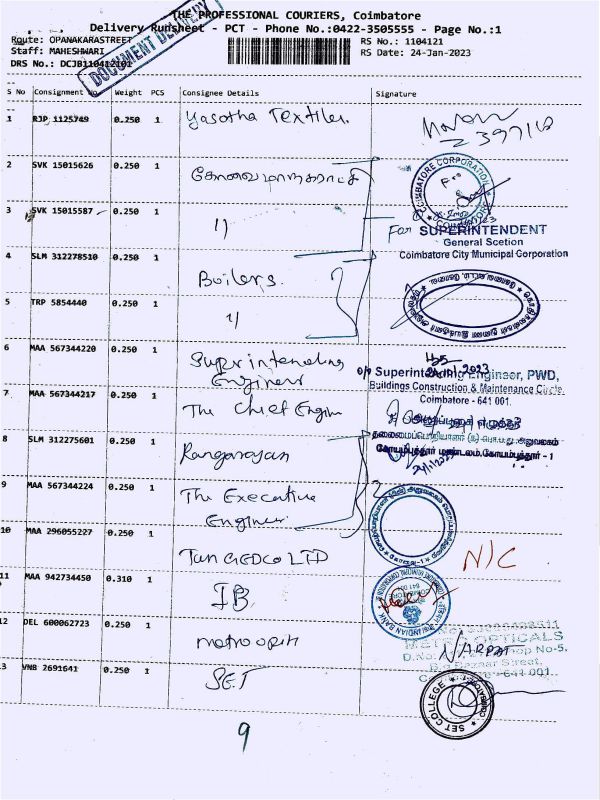 THE PROFESSIONAL COURIERS, Coimbatore
Delivery Runsheet - PCT - Phone No.:0422-3505555 - Page No.:1
Route: OPANAKARASTREET
RS No.: 1104121
Staff: MAHESHWARI
RS Date: 24-Jan-2023
DRS No.: DCJB110412101
DOCUMENT DELIVERY
S No Consignment No Weight PCS Consignee Details Signature
1 RJP 1125749 0.250 1 Yasotha Textiles.
2 SVK 15015626 0.250 1 கோவை மாநகராட்சி
COIMBATORE CORPORATION
3 SVK 15015587 0.250 1 11
For SUPERINTENDENT
General Scetion
Coimbatore City Municipal Corporation
4 SLM 312278510 0.250 1 Boilers.
5 TRP 5854440 0.250 1 11
6 MAA 567344220 0.250 1 Superintending Engineer
O/o Superintending Engineer, PWD,
Buildings Construction & Maintenance Circle,
Coimbatore - 641 001.
7 MAA 567344217 0.250 1 The Chief Engin
8 SLM 312275601 0.250 1 Rangarajan
கோயம்புத்தூர் மண்டலம், கோயம்புத்தூர் - 1
9 MAA 567344224 0.250 1 The Executive Engineer
10 MAA 296055227 0.250 1 TANGEDCO LTD
N/C
11 MAA 942734450 0.310 1 IB
INDIAN BANK
12 DEL 600062723 0.250 1 metro opti
METRO OPTICALS
Bazaar Street,
641 001
13 VNB 2691641 0.250 1 SET
SET COLLEGE
9